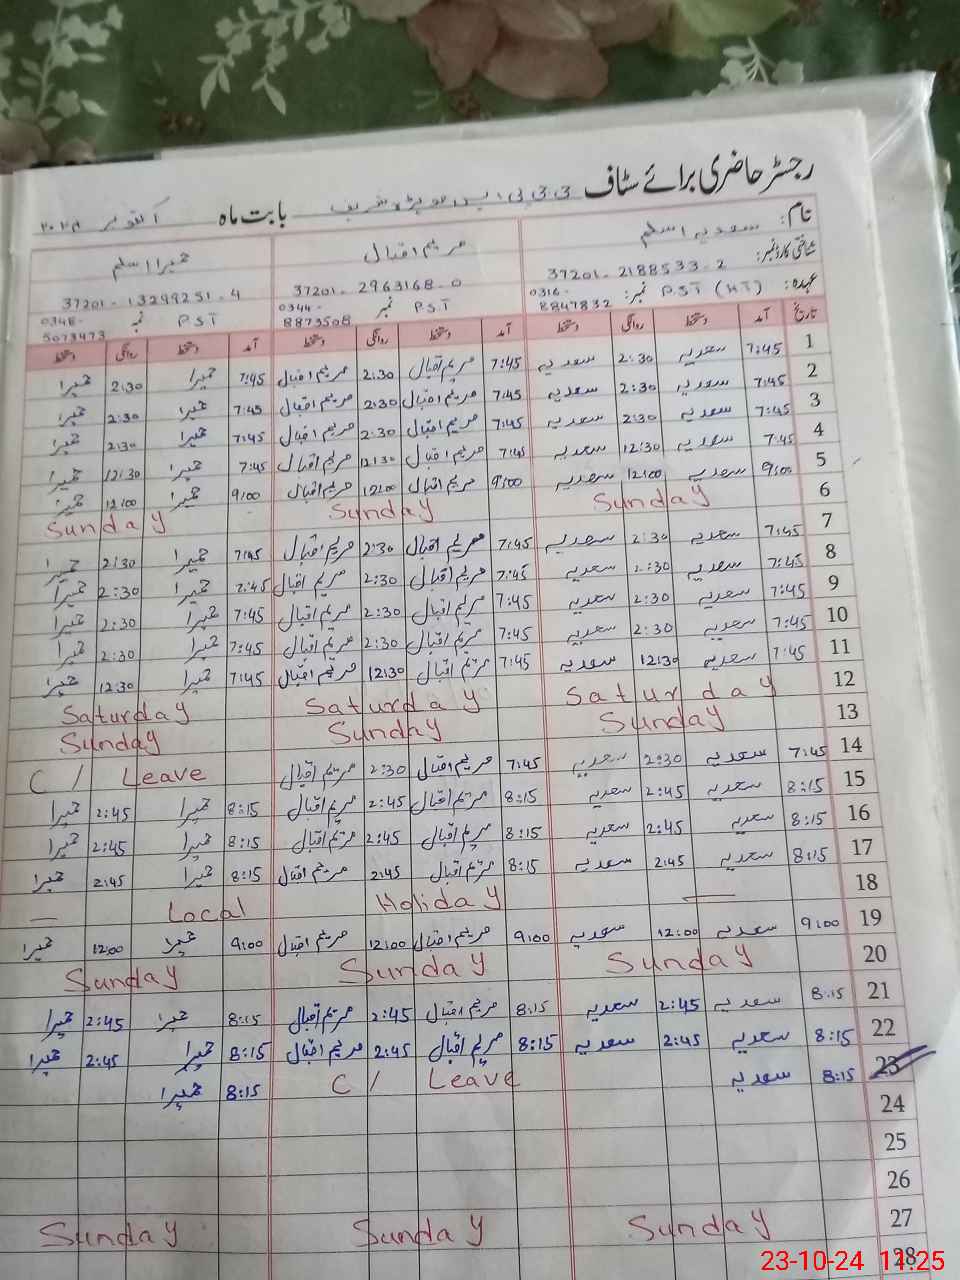 رجسٹر حاضری برائے سٹاف بابت ماہ اکتوبر ۲۰۲۴
نام: سعدیہ اسلم مریم اقبال حمیرا اسلم
شناختی کارڈ نمبر: 37201-2188533-2 37201-2963168-0 37201-13299251-4
عہدہ: PST (HT) نمبر: 0316-8847832 PST نمبر 0344-8873508 PST نمبر 0348-5073473
تاریخ آمد دستخط روانگی دستخط آمد دستخط روانگی دستخط آمد دستخط روانگی دستخط
1 7:45 سعدیہ 2:30 سعدیہ 7:45 مریم اقبال 2:30 مریم اقبال 7:45 حمیرا 2:30 حمیرا
2 7:45 سعدیہ 2:30 سعدیہ 7:45 مریم اقبال 2:30 مریم اقبال 7:45 حمیرا 2:30 حمیرا
3 7:45 سعدیہ 2:30 سعدیہ 7:45 مریم اقبال 2:30 مریم اقبال 7:45 حمیرا 2:30 حمیرا
4 7:45 سعدیہ 12:30 سعدیہ 7:45 مریم اقبال 12:30 مریم اقبال 7:45 حمیرا 12:30 حمیرا
5 9:00 سعدیہ 12:00 سعدیہ 9:00 مریم اقبال 12:00 مریم اقبال 9:00 حمیرا 12:00 حمیرا
6 Sunday Sunday Sunday
7 7:45 سعدیہ 2:30 سعدیہ 7:45 مریم اقبال 2:30 مریم اقبال 7:45 حمیرا 2:30 حمیرا
8 7:45 سعدیہ 2:30 سعدیہ 7:45 مریم اقبال 2:30 مریم اقبال 7:45 حمیرا 2:30 حمیرا
9 7:45 سعدیہ 2:30 سعدیہ 7:45 مریم اقبال 2:30 مریم اقبال 7:45 حمیرا 2:30 حمیرا
10 7:45 سعدیہ 2:30 سعدیہ 7:45 مریم اقبال 2:30 مریم اقبال 7:45 حمیرا 2:30 حمیرا
11 7:45 سعدیہ 12:30 سعدیہ 7:45 مریم اقبال 12:30 مریم اقبال 7:45 حمیرا 12:30 حمیرا
12 Saturday Saturday Saturday
13 Sunday Sunday Sunday
14 7:45 سعدیہ 2:30 سعدیہ 7:45 مریم اقبال 2:30 مریم اقبال C / Leave
15 8:15 سعدیہ 2:45 سعدیہ 8:15 مریم اقبال 2:45 مریم اقبال 8:15 حمیرا 2:45 حمیرا
16 8:15 سعدیہ 2:45 سعدیہ 8:15 مریم اقبال 2:45 مریم اقبال 8:15 حمیرا 2:45 حمیرا
17 8:15 سعدیہ 2:45 سعدیہ 8:15 مریم اقبال 2:45 مریم اقبال 8:15 حمیرا 2:45 حمیرا
18 — Local Holiday —
19 9:00 سعدیہ 12:00 سعدیہ 9:00 مریم اقبال 12:00 مریم اقبال 9:00 حمیرا 12:00 حمیرا
20 Sunday Sunday Sunday
21 8:15 سعدیہ 2:45 سعدیہ 8:15 مریم اقبال 2:45 مریم اقبال 8:15 حمیرا 2:45 حمیرا
22 8:15 سعدیہ 2:45 سعدیہ 8:15 مریم اقبال 2:45 مریم اقبال 8:15 حمیرا 2:45 حمیرا
23 8:15 سعدیہ C / Leave 8:15 حمیرا
24
25
26
27 Sunday Sunday Sunday
28
23-10-24 11:25